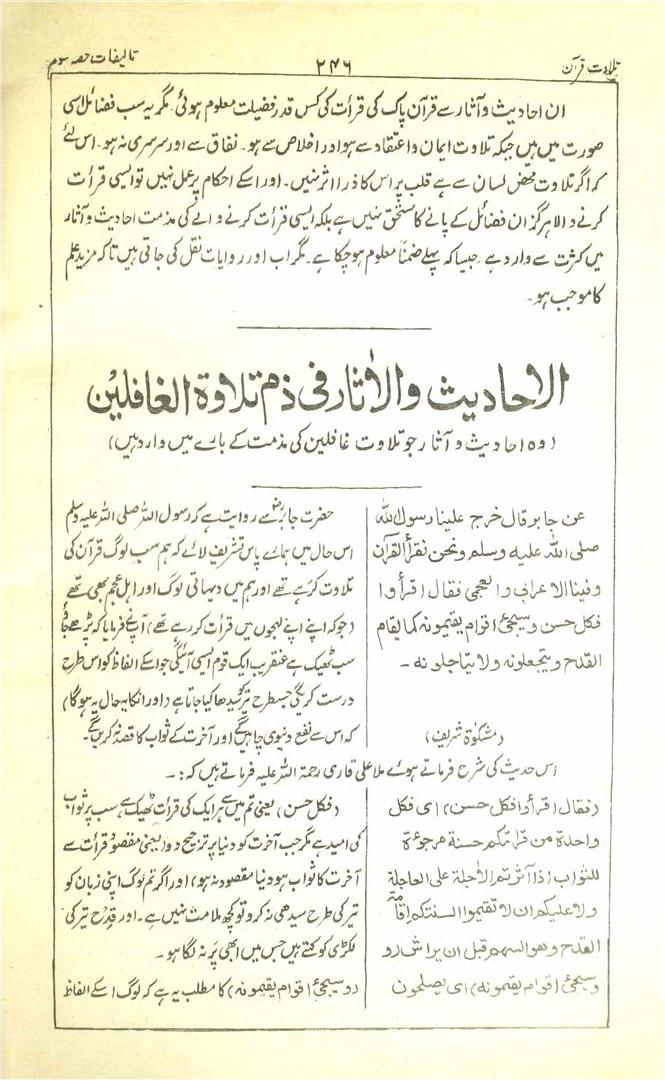 تلاوت قرآن
۲۴۶
تالیفات حصہ سوم
ان احادیث و آثار سے قرآن پاک کی قرأت کی کس قدر فضیلت معلوم ہوئی۔ مگر یہ سب فضائل اسی
صورت میں ہیں جبکہ تلاوت ایمان و اعتقاد سے ہو اور اخلاص سے ہو۔ نفاق سے اور سرسری نہ ہو۔ اس لئے
کہ اگر تلاوت محض لسان سے ہے قلب پر اس کا ذرا اثر نہیں۔ اور اسکے احکام پر عمل نہیں تو ایسی قرأت
کرنے والا ہرگز ان فضائل کے پانے کا مستحق نہیں ہے بلکہ ایسی قرأت کرنے والے کی مذمت احادیث و آثار
میں کثرت سے وارد ہے۔ جیسا کہ پہلے ضمناً معلوم ہو چکا ہے۔ مگر اب اور روایات نقل کی جاتی ہیں تاکہ مزید علم
کا موجب ہو۔
الاحادیث والاٰثار فی ذم تلاوۃ الغافلین
(وہ احادیث و آثار جو تلاوت غافلین کی مذمت کے بارے میں وارد ہیں)
عن جابر قال خرج علینا رسول اللہ
صلی اللہ علیہ وسلم ونحن نقرأ القرآن
وفینا الاعرابی والعجمی فقال اقرأوا
فکل حسن وسیجئ اقوام یقیمونہ کما یقام
القدح ویتعجلونہ ولا یتأجلونہ۔
(مشکوٰۃ شریف)
حضرت جابرؓ سے روایت ہے کہ رسول اللہ صلی اللہ علیہ وسلم
اس حال میں ہمارے پاس تشریف لائے کہ ہم سب لوگ قرآن کی
تلاوت کر رہے تھے اور ہم میں دیہاتی لوگ اور اہل عجم بھی تھے
(جو کہ اپنے اپنے لہجوں میں قرأت کر رہے تھے) آپ نے فرمایا کہ پڑھے جاؤ
سب ٹھیک ہے عنقریب ایک قوم ایسی آئیگی جو اسکے الفاظ کو اس طرح
درست کریگی جسطرح تیر کو سیدھا کیا جاتا ہے (اور انکا یہ حال یہ ہوگا)
کہ اس سے نفع دنیوی چاہینگے اور آخرت کے ثواب کا قصد نہ کرینگے۔
اس حدیث کی شرح فرماتے ہوئے ملا علی قاری رحمۃ اللہ علیہ فرماتے ہیں کہ:۔
(فقال اقرأوا فکل حسن) ای فکل
واحدۃ من قرأتکم حسنۃ مرجوۃ
للثواب اذا آثرتم الاٰجلۃ علی العاجلۃ
ولا علیکم ان لا تقیموا السنتکم اقامۃ
القدح وھو السھم قبل ان یراش (و
وسیجئ اقوام یقیمونہ) ای یصلحون
(فکل حسن) یعنی تم میں سے ہر ایک کی قرأت ٹھیک ہے سب پر ثواب
کی امید ہے مگر جب آخرت کو دنیا پر ترجیح دو (یعنی مقصود قرأت سے
آخرت کا ثواب ہو دنیا مقصود نہ ہو) اور اگر تم لوگ اپنی زبان کو
تیر کی طرح سیدھی نہ کرو تو کچھ ملامت نہیں ہے۔ اور قدح تیر کی
لکڑی کو کہتے ہیں جس میں ابھی پر نہ لگا ہو۔
(وسیجئ اقوام یقیمونہ) کا مطلب یہ ہے کہ لوگ اسکے الفاظ